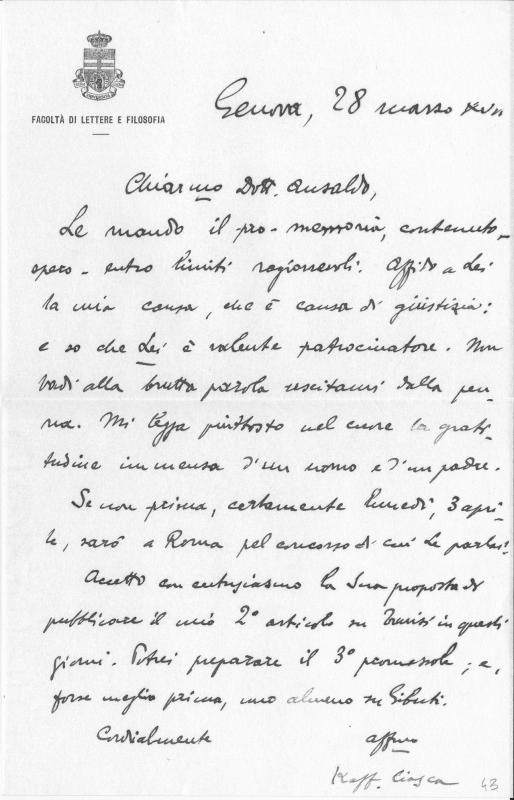 FACOLTÀ DI LETTERE E FILOSOFIA
Genova, 28 marzo XVII
Chiarmo Dott. Ansaldo,
Le mando il pro-memoria, contenuto,
spero - entro limiti ragionevoli. Affido a Lei
la mia causa, che è causa di giustizia:
e so che Lei è valente patrocinatore. Non
badi alla brutta parola uscitami dalla pen-
na. Mi legga piuttosto nel cuore la grati-
tudine immensa d'un uomo e d'un padre.
Se non prima, certamente lunedì, 3 apri-
le, sarò a Roma pel concorso di cui Le parlai.
Accetto con entusiasmo la Sua proposta di
pubblicare il mio 2° articolo su Tunisi in questi
giorni. Potrei preparare il 3° promessole; e,
forse meglio prima, uno almeno su Gibuti.
Cordialmente affmo
Raff. Ciasca
43